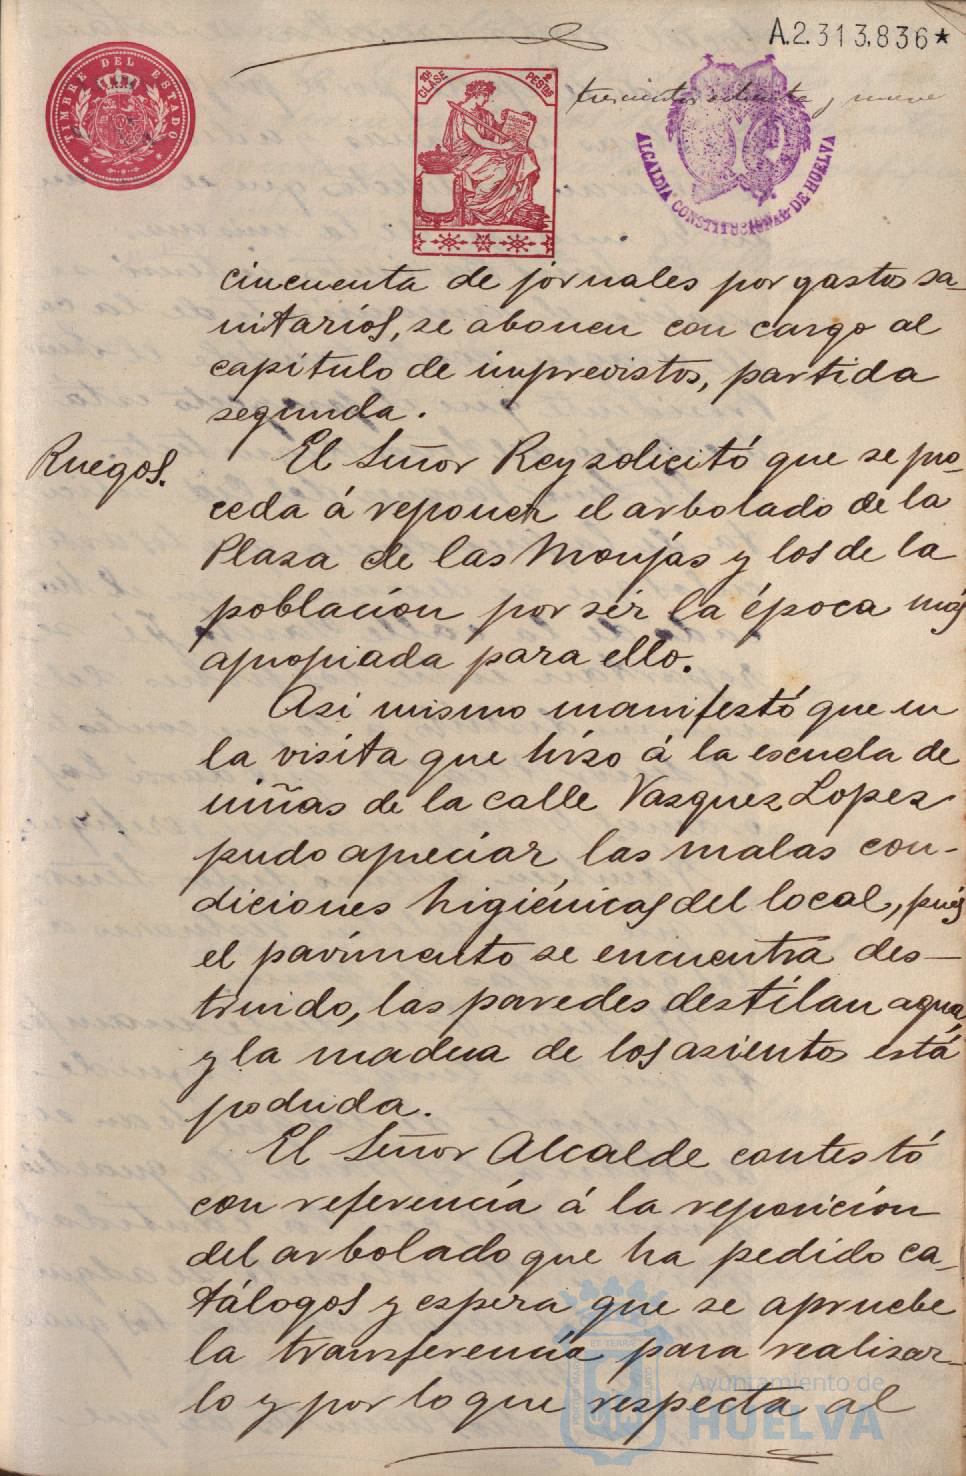 A.2.313.836★
TIMBRE DEL ESTADO
10ª CLASE
2 PESTAS
trescientos ochenta y nueve
ALCALDIA CONSTITUCIONAL DE HUELVA
cincuenta de jornales por gastos sa-
nitarios, se abonen con cargo al
capítulo de imprevistos, partida
segunda.
Ruegos.
El Señor Rey solicitó que se pro-
ceda á reponer el arbolado de la
Plaza de las Monjas y los de la
población por sér la época más
apropiada para ello.
Asi mismo manifestó que en
la visita que hizo á la escuela de
niñas de la calle Vazquez Lopez
pudo apreciar las malas con-
diciones higiénicas del local, pués
el pavimento se encuentra des-
truido, las paredes destilan agua,
y la madera de los asientos está
podrida.
El Señor Alcalde contestó
con referencia á la reposición
del arbolado que ha pedido ca-
tálogos y espera que se apruebe
la transferencia para realizar-
lo y por lo que respecta al
Ayuntamiento de
HUELVA